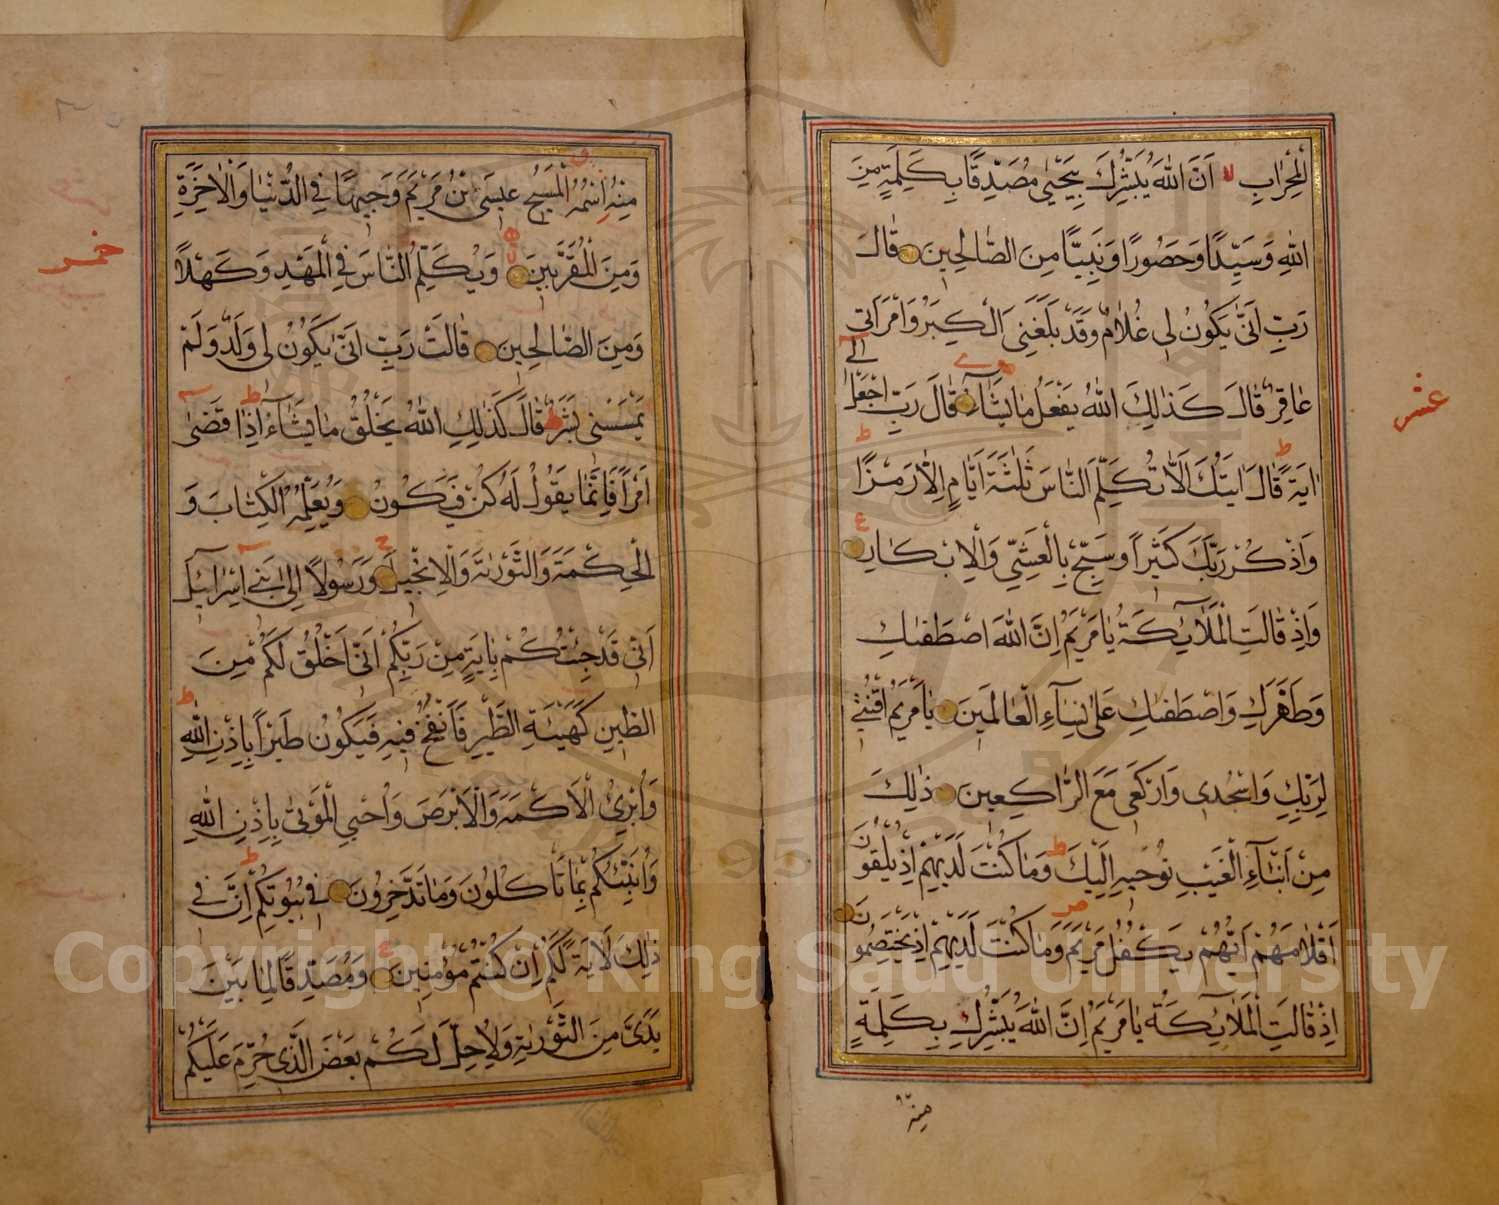 الْمِحْرَابِ لا اَنَّ اللّٰهَ يُبَشِّرُكَ بِيَحْيٰى مُصَدِّقًا بِكَلِمَةٍ مِنَ
اللّٰهِ وَسَيِّدًا وَحَصُورًا وَنَبِيًّا مِنَ الصَّالِحِينَ قَالَ
رَبِّ اَنّٰى يَكُونُ لِى غُلَامٌ وَقَدْ بَلَغَنِىَ الْكِبَرُ وَامْرَاَتِى
عَاقِرٌ قَالَ كَذٰلِكَ اللّٰهُ يَفْعَلُ مَا يَشَآءُ قَالَ رَبِّ اجْعَلْ لِى
اٰيَةً ط قَالَ اٰيَتُكَ اَلَّا تُكَلِّمَ النَّاسَ ثَلٰثَةَ اَيَّامٍ اِلَّا رَمْزًا ط
وَاذْكُرْ رَبَّكَ كَثِيرًا وَسَبِّحْ بِالْعَشِىِّ وَالْاِبْكَارِ ع
وَاِذْ قَالَتِ الْمَلٰٓائِكَةُ يَا مَرْيَمُ اِنَّ اللّٰهَ اصْطَفٰيكِ
وَطَهَّرَكِ وَاصْطَفٰيكِ عَلٰى نِسَآءِ الْعَالَمِينَ يَا مَرْيَمُ اقْنُتِى
لِرَبِّكِ وَاسْجُدِى وَارْكَعِى مَعَ الرَّاكِعِينَ ذٰلِكَ
مِنْ اَنْبَآءِ الْغَيْبِ نُوحِيهِ اِلَيْكَ ط وَمَا كُنْتَ لَدَيْهِمْ اِذْ يُلْقُونَ
اَقْلَامَهُمْ اَيُّهُمْ يَكْفُلُ مَرْيَمَ ص وَمَا كُنْتَ لَدَيْهِمْ اِذْ يَخْتَصِمُونَ
اِذْ قَالَتِ الْمَلٰٓائِكَةُ يَا مَرْيَمُ اِنَّ اللّٰهَ يُبَشِّرُكِ بِكَلِمَةٍ
مِنْهُ
عشر
مِنْهُ اسْمُهُ الْمَسِيحُ عِيسَى بْنُ مَرْيَمَ وَجِيهًا فِى الدُّنْيَا وَالْاٰخِرَةِ
وَمِنَ الْمُقَرَّبِينَ وَيُكَلِّمُ النَّاسَ فِى الْمَهْدِ وَكَهْلًا
وَمِنَ الصَّالِحِينَ قَالَتْ رَبِّ اَنّٰى يَكُونُ لِى وَلَدٌ وَلَمْ
يَمْسَسْنِى بَشَرٌ ط قَالَ كَذٰلِكِ اللّٰهُ يَخْلُقُ مَا يَشَآءُ ط اِذَا قَضٰى
اَمْرًا فَاِنَّمَا يَقُولُ لَهُ كُنْ فَيَكُونُ وَيُعَلِّمُهُ الْكِتَابَ وَ
الْحِكْمَةَ وَالتَّوْرٰيةَ وَالْاِنْجِيلَ ج وَرَسُولًا اِلٰى بَنِى اِسْرَآئِيلَ
اَنِّى قَدْ جِئْتُكُمْ بِاٰيَةٍ مِنْ رَبِّكُمْ اَنِّى اَخْلُقُ لَكُمْ مِنَ
الطِّينِ كَهَيْئَةِ الطَّيْرِ فَاَنْفُخُ فِيهِ فَيَكُونُ طَيْرًا بِاِذْنِ اللّٰهِ ط
وَاُبْرِئُ الْاَكْمَهَ وَالْاَبْرَصَ وَاُحْيِى الْمَوْتٰى بِاِذْنِ اللّٰهِ
وَاُنَبِّئُكُمْ بِمَا تَاْكُلُونَ وَمَا تَدَّخِرُونَ فِى بُيُوتِكُمْ ط اِنَّ فِى
ذٰلِكَ لَاٰيَةً لَكُمْ اِنْ كُنْتُمْ مُؤْمِنِينَ ج وَمُصَدِّقًا لِمَا بَيْنَ
يَدَىَّ مِنَ التَّوْرٰيةِ وَلِاُحِلَّ لَكُمْ بَعْضَ الَّذِى حُرِّمَ عَلَيْكُمْ
خمس
Copyright © King Saud University
1957